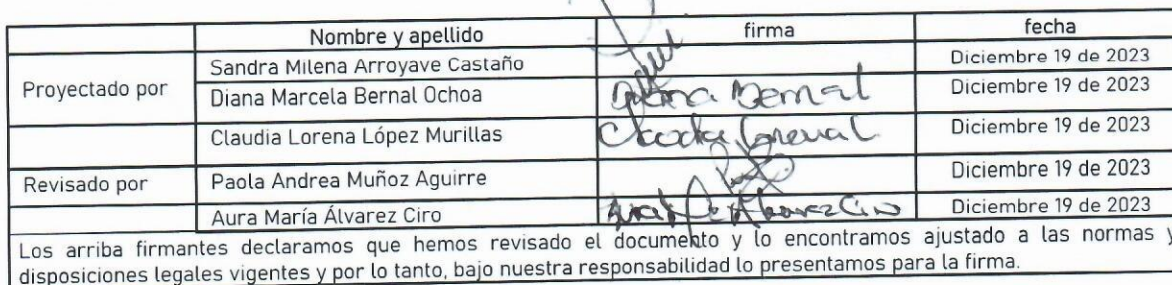 Nombre y apellido firma fecha
Sandra Milena Arroyave Castaño Diciembre 19 de 2023
Proyectado por Diana Marcela Bernal Ochoa Diana Bernal Diciembre 19 de 2023
Claudia Lorena López Murillas Claudia Lorena L Diciembre 19 de 2023
Revisado por Paola Andrea Muñoz Aguirre Diciembre 19 de 2023
Aura María Álvarez Ciro Diciembre 19 de 2023
Los arriba firmantes declaramos que hemos revisado el documento y lo encontramos ajustado a las normas y
disposiciones legales vigentes y por lo tanto, bajo nuestra responsabilidad lo presentamos para la firma.